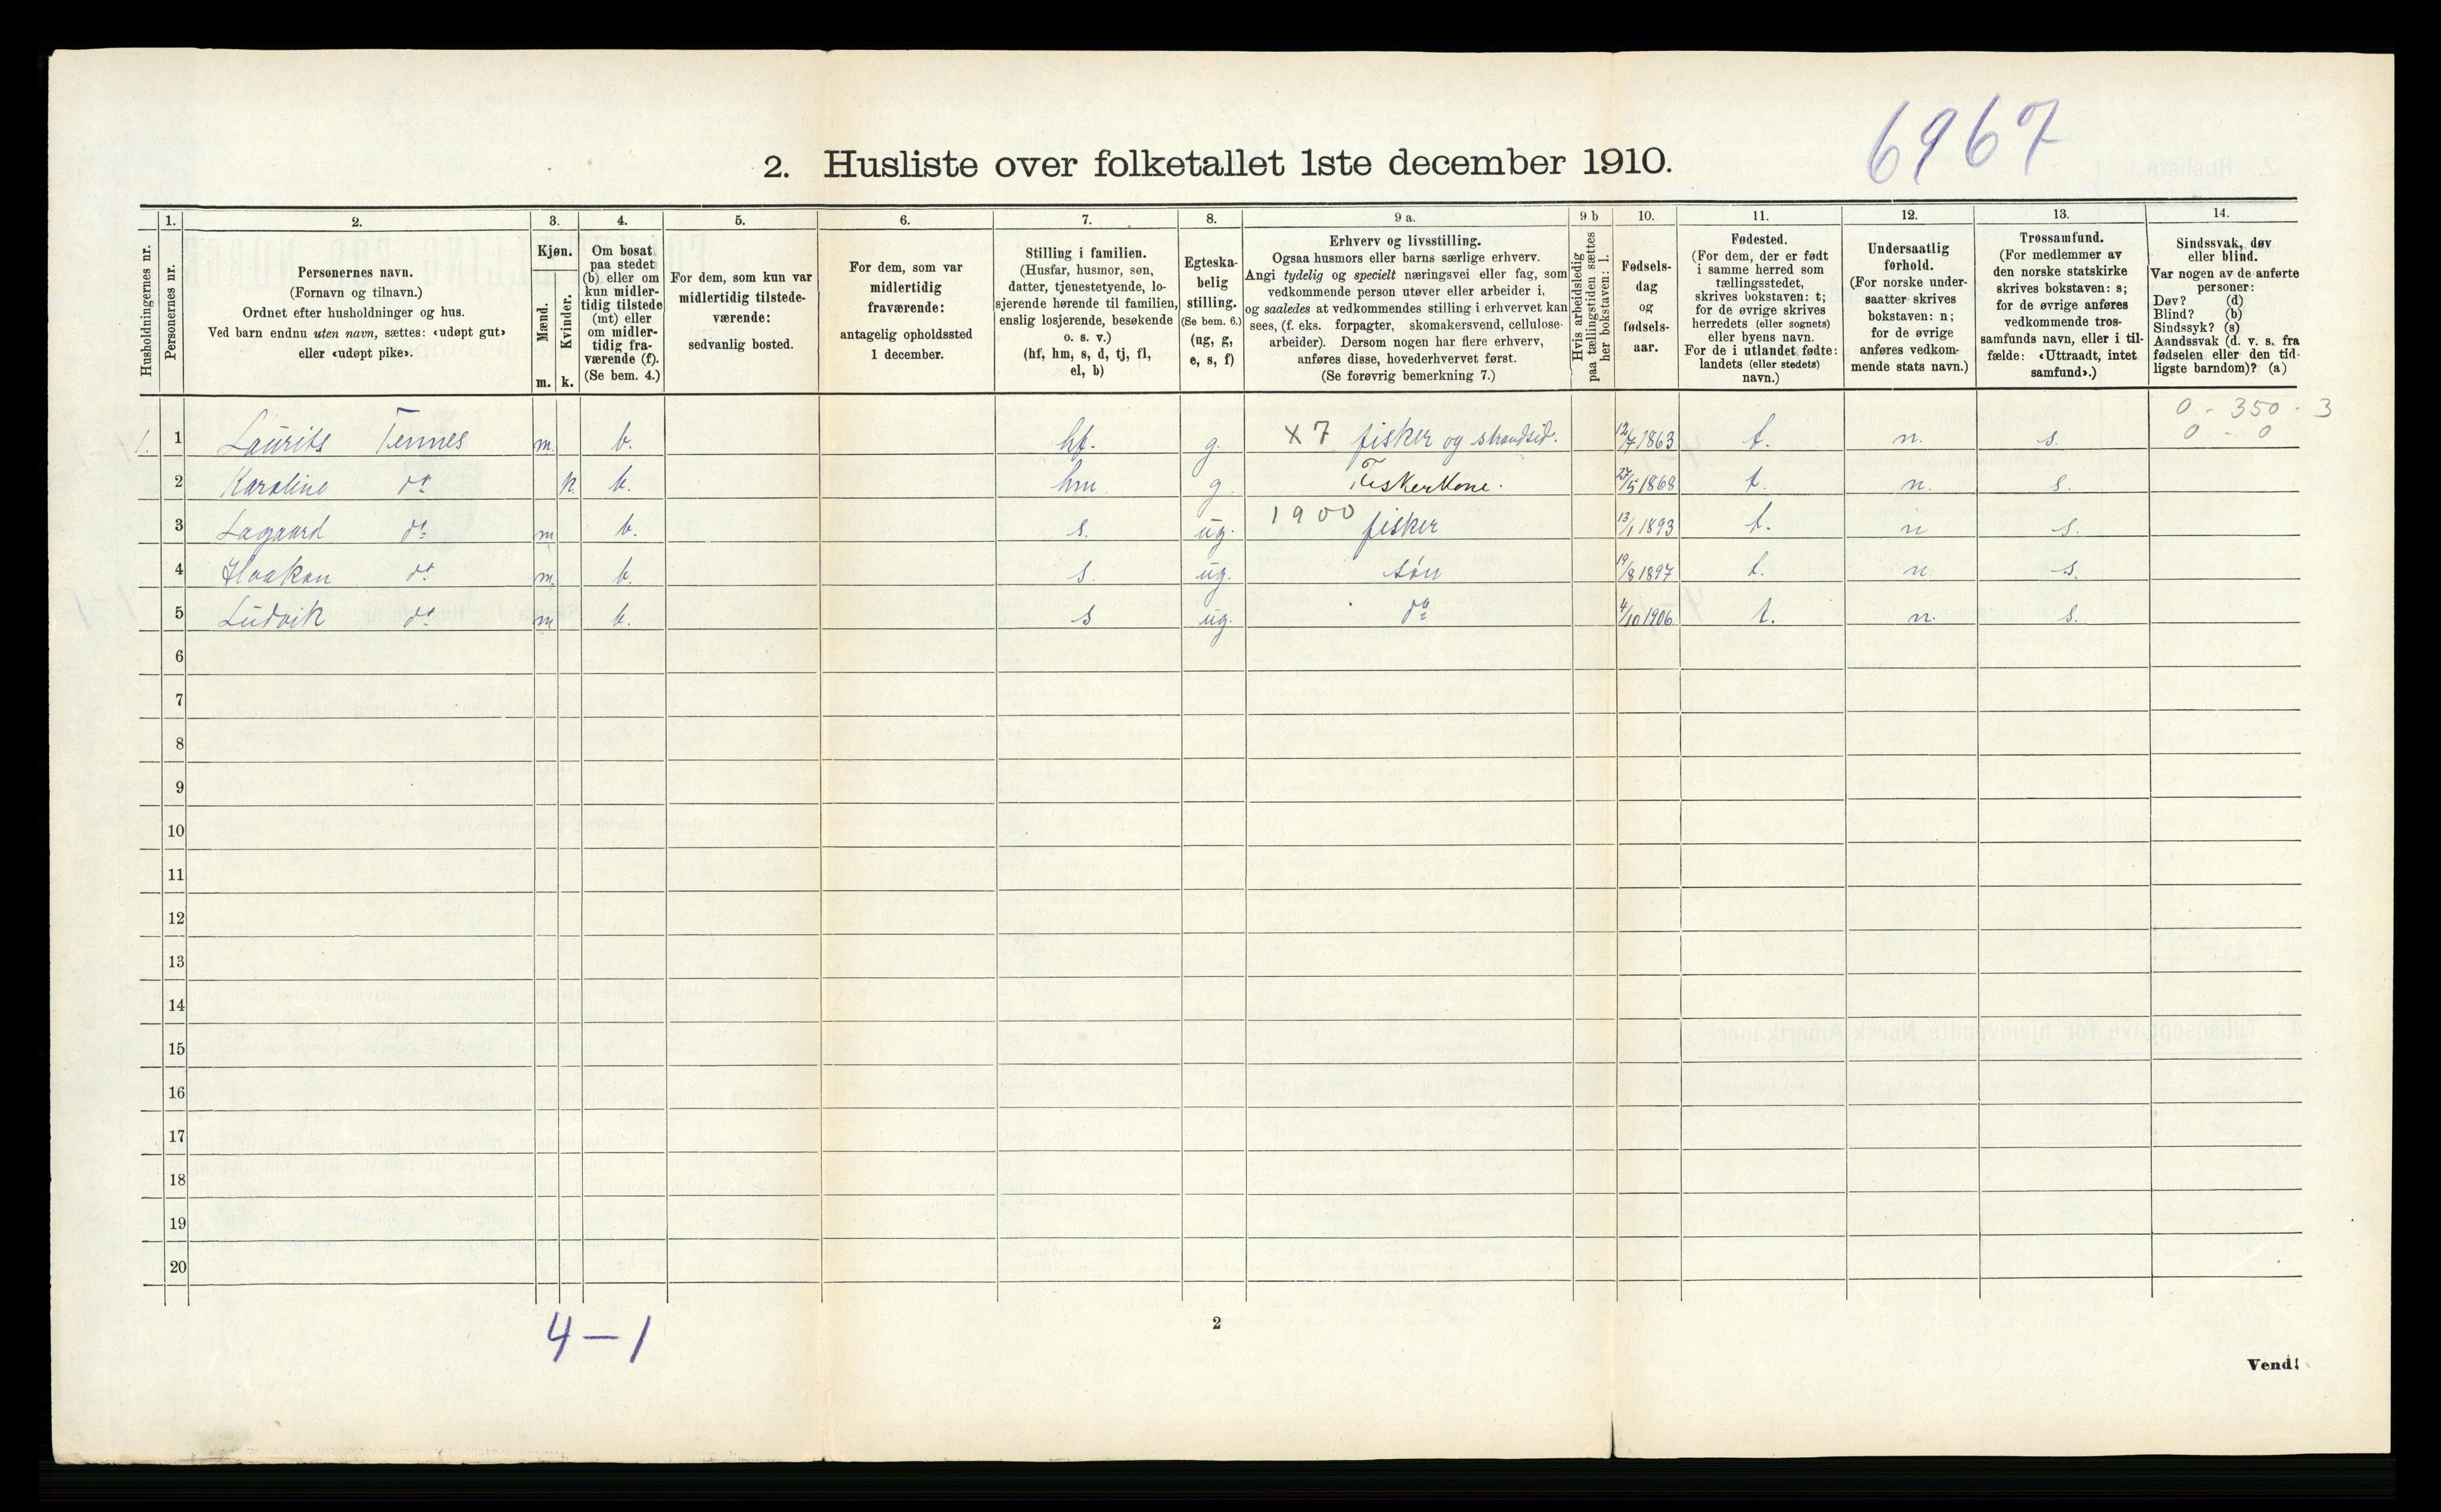 6967
2. Husliste over folketallet 1ste december 1910.
Husholdningernes nr.
1. Personernes nr.
2. Personernes navn.
(Fornavn og tilnavn.)
Ordnet efter husholdninger og hus.
Ved barn endnu uten navn, sættes: «udøpt gut»
eller «udøpt pike».
3. Kjøn.
Mænd. Kvinder.
m. k.
4. Om bosat
paa stedet
(b) eller om
kun midler-
tidig tilstede
(mt) eller
om midler-
tidig fra-
værende (f).
(Se bem. 4.)
5. For dem, som kun var
midlertidig tilstede-
værende:
sedvanlig bosted.
6. For dem, som var
midlertidig
fraværende:
antagelig opholdssted
1 december.
7. Stilling i familien.
(Husfar, husmor, søn,
datter, tjenestetyende, lo-
sjerende hørende til familien,
enslig losjerende, besøkende
o. s. v.)
(hf, hm, s, d, tj, fl,
el, b)
8. Egteska-
belig
stilling.
(Se bem. 6.)
(ug, g,
e, s, f)
9 a. Erhverv og livsstilling.
Ogsaa husmors eller barns særlige erhverv.
Angi tydelig og specielt næringsvei eller fag, som
vedkommende person utøver eller arbeider i,
og saaledes at vedkommendes stilling i erhvervet kan
sees, (f. eks. forpagter, skomakersvend, cellulose-
arbeider). Dersom nogen har flere erhverv,
anføres disse, hovederhvervet først.
(Se forøvrig bemerkning 7.)
9 b Hvis arbeidsledig
paa tællingstiden sættes
her bokstaven: l.
10. Fødsels-
dag
og
fødsels-
aar.
11. Fødested.
(For dem, der er født
i samme herred som
tællingsstedet,
skrives bokstaven: t;
for de øvrige skrives
herredets (eller sognets)
eller byens navn.
For de i utlandet fødte:
landets (eller stedets)
navn.)
12. Undersaatlig
forhold.
(For norske under-
saatter skrives
bokstaven: n;
for de øvrige
anføres vedkom-
mende stats navn.)
13. Trossamfund.
(For medlemmer av
den norske statskirke
skrives bokstaven: s;
for de øvrige anføres
vedkommende tros-
samfunds navn, eller i til-
fælde: «Uttraadt, intet
samfund».)
14. Sindssvak, døv
eller blind.
Var nogen av de anførte
personer:
Døv? (d)
Blind? (b)
Sindssyk? (s)
Aandssvak (d. v. s. fra
fødselen eller den tid-
ligste barndom)? (a)
0 - 350 - 3
0 - 0
1. 1 Laurits Tennes m. b. hf. g. x 7 fisker og strandsid. 12/7 1863 t. n. s.
2 Karoline do k. b. hm. g. Fiskerkone. 27/5 1868 t. n. s.
3 Lagaard do m b. s. ug. 1900 fisker 13/1 1893 t. n s.
4 Haakon do m. b. s. ug. søn 19/8 1897 t. n. s.
5 Ludvik do m b. s ug. do 4/10 1906 t. n. s.
6
7
8
9
10
11
12
13
14
15
16
17
18
19
20
4-1
2
Vend!